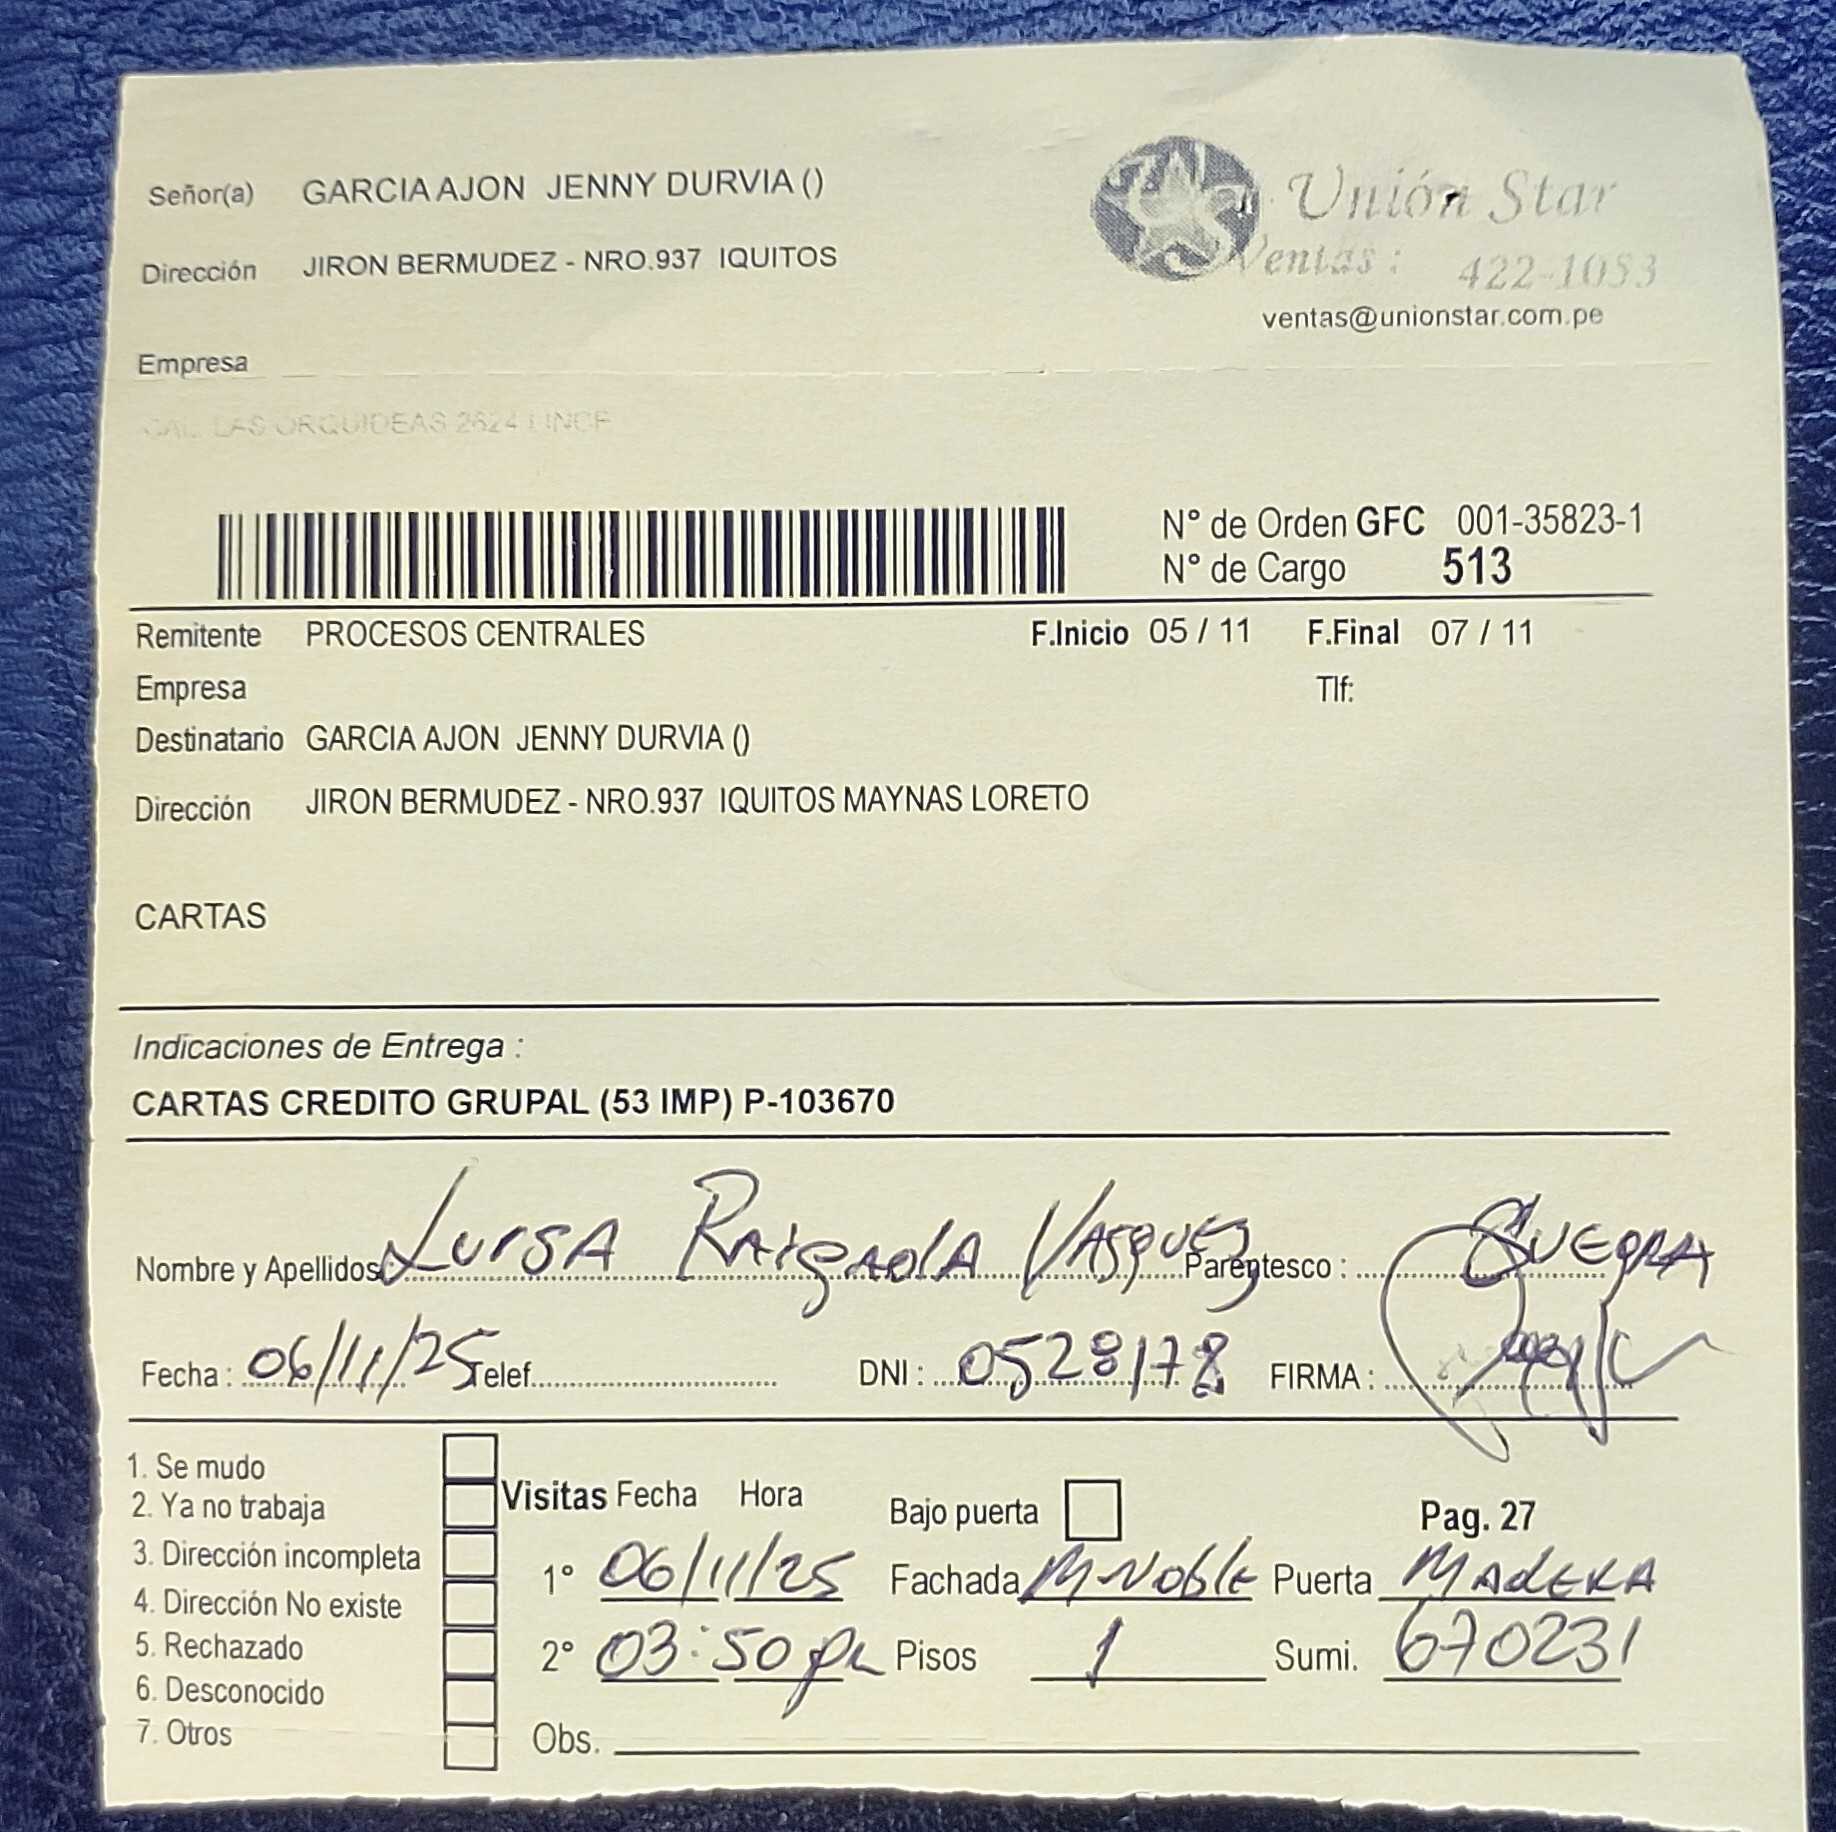 Señor(a) GARCIA AJON JENNY DURVIA ()
Unión Star
Dirección JIRON BERMUDEZ - NRO.937 IQUITOS
Ventas : 422-1053
ventas@unionstar.com.pe
Empresa
CAL. LAS ORQUIDEAS 2624 LINCE
N° de Orden GFC 001-35823-1
N° de Cargo 513
Remitente PROCESOS CENTRALES F.Inicio 05 / 11 F.Final 07 / 11
Empresa Tlf:
Destinatario GARCIA AJON JENNY DURVIA ()
Dirección JIRON BERMUDEZ - NRO.937 IQUITOS MAYNAS LORETO
CARTAS
Indicaciones de Entrega :
CARTAS CREDITO GRUPAL (53 IMP) P-103670
Nombre y Apellidos: Luisa Vasquez Parentesco : SUEGRA
Fecha : 06/11/25 Telef. DNI : 0528178 FIRMA :
1. Se mudo
2. Ya no trabaja
3. Dirección incompleta
4. Dirección No existe
5. Rechazado
6. Desconocido
7. Otros
Visitas Fecha Hora Bajo puerta Pag. 27
1° 06/11/25 Fachada M-Noble Puerta MADERA
2° 03:50 pm Pisos 1 Sumi. 670231
Obs.